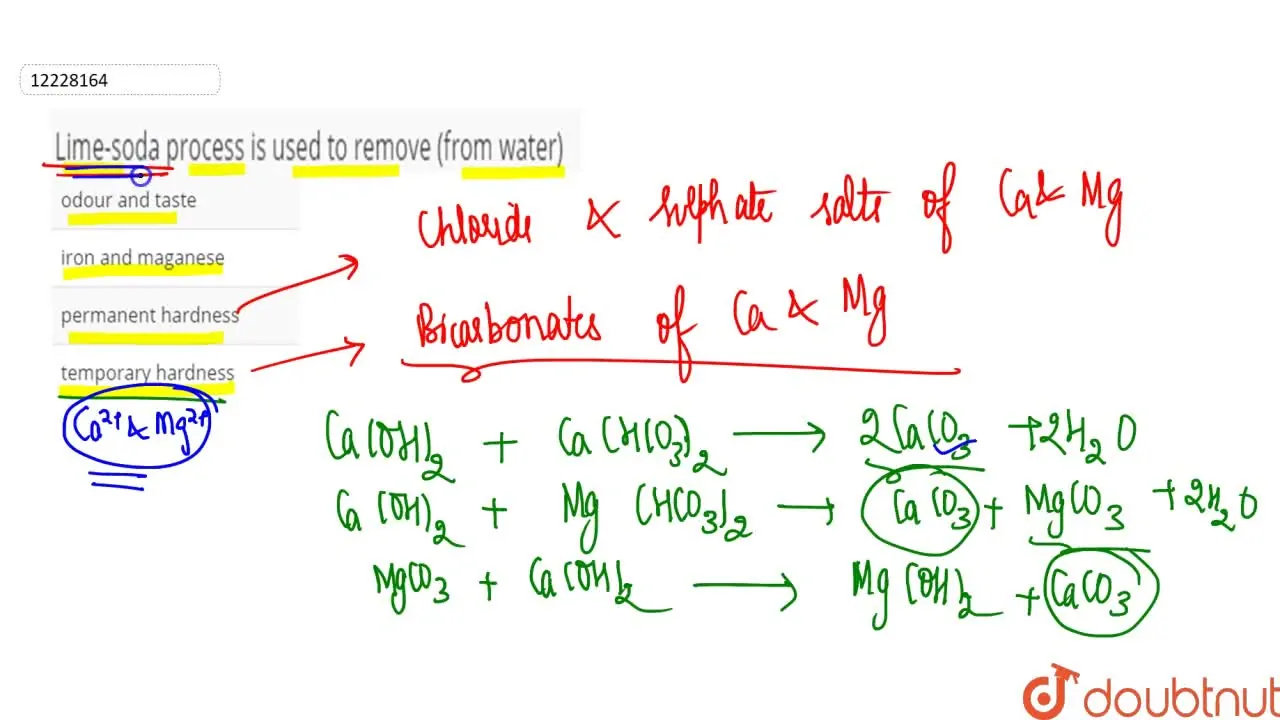 12228164
Lime-soda process is used to remove (from water)
odour and taste
iron and maganese
permanent hardness
temporary hardness
Chloride & sulphate salts of Ca & Mg
Bicarbonates of Ca & Mg
Ca²⁺ & Mg²⁺
Ca(OH)₂ + Ca(HCO₃)₂ → 2CaCO₃ + 2H₂O
Ca(OH)₂ + Mg(HCO₃)₂ → CaCO₃ + MgCO₃ + 2H₂O
MgCO₃ + Ca(OH)₂ → Mg(OH)₂ + CaCO₃
doubtnut